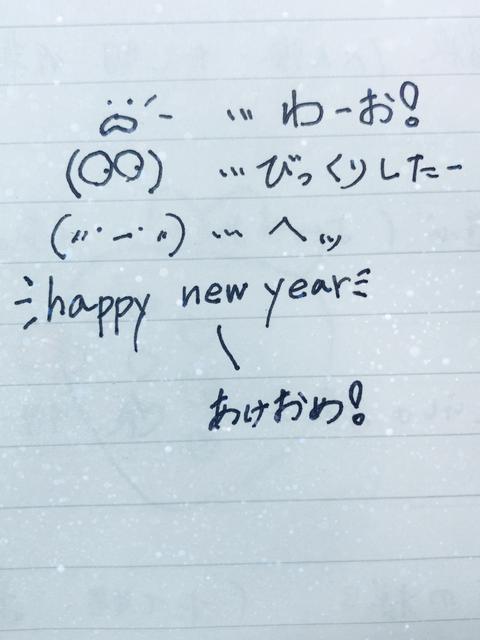 … わーお!
(◎◎) … びっくりしたー
(〃・ー・〃) … へッ
happy new year
あけおめ!